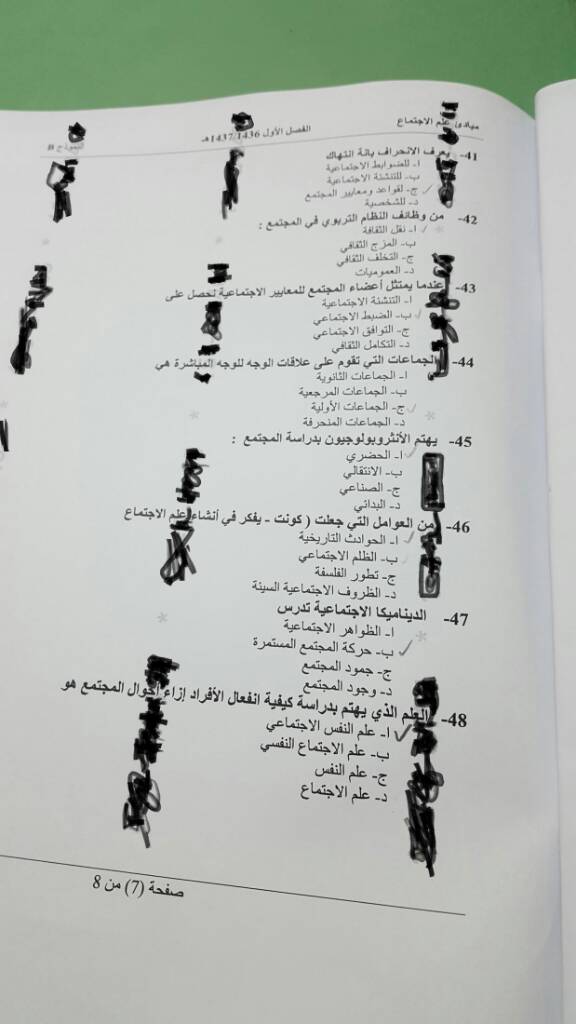 مبادئ علم الاجتماع
الفصل الأول 1437/1436هـ
النموذج B
41- يعرف الانحراف بانة انتهاك
ا- للضوابط الاجتماعية
ب- للتنشئة الاجتماعية
ج- لقواعد ومعايير المجتمع
د- للشخصية
42- من وظائف النظام التربوي في المجتمع :
ا- نقل الثقافة
ب- المزج الثقافي
ج- التخلف الثقافي
د- العموميات
43- عندما يمتثل أعضاء المجتمع للمعايير الاجتماعية نحصل على
ا- التنشئة الاجتماعية
ب- الضبط الاجتماعي
ج- التوافق الاجتماعي
د- التكامل الثقافي
44- الجماعات التي تقوم على علاقات الوجه للوجه المباشرة هي
ا- الجماعات الثانوية
ب- الجماعات المرجعية
ج- الجماعات الأولية
د- الجماعات المنحرفة
45- يهتم الأنثروبولوجيون بدراسة المجتمع :
ا- الحضري
ب- الانتقالي
ج- الصناعي
د- البدائي
46- من العوامل التي جعلت ( كونت - يفكر في أنشاء علم الاجتماع
ا- الحوادث التاريخية
ب- الظلم الاجتماعي
ج- تطور الفلسفة
د- الظروف الاجتماعية السيئة
47- الديناميكا الاجتماعية تدرس
ا- الظواهر الاجتماعية
ب- حركة المجتمع المستمرة
ج- جمود المجتمع
د- وجود المجتمع
48- العلم الذي يهتم بدراسة كيفية انفعال الأفراد إزاء أحوال المجتمع هو
ا- علم النفس الاجتماعي
ب- علم الاجتماع النفسي
ج- علم النفس
د- علم الاجتماع
صفحة (7) من 8